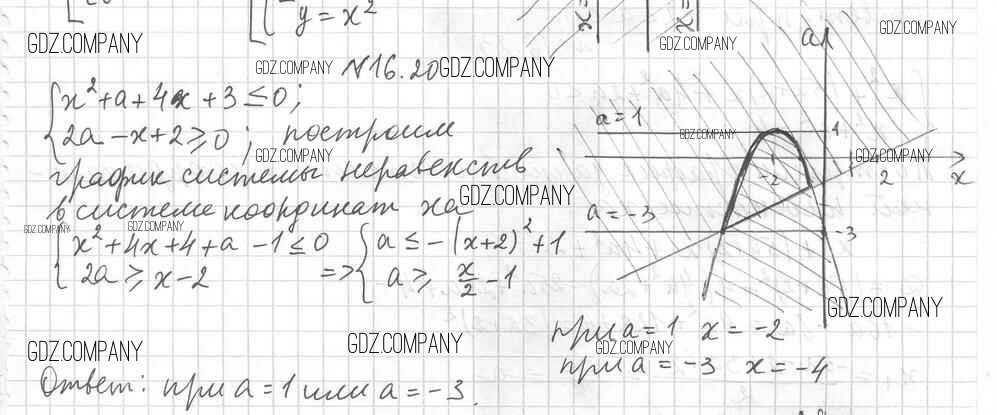 y = x²
GDZ.COMPANY
GDZ.COMPANY
GDZ.COMPANY
N16.20
GDZ.COMPANY
GDZ.COMPANY
x² + a + 4x + 3 ≤ 0;
2a - x + 2 ≥ 0; построим
GDZ.COMPANY
график системы неравенств
в системе координат xa
GDZ.COMPANY
GDZ.COMPANY
GDZ.COMPANY
x² + 4x + 4 + a - 1 ≤ 0
2a ≥ x - 2
=> a ≤ -(x+2)² + 1
a ≥ x/2 - 1
a
a = 1
1
GDZ.COMPANY
GDZ.COMPANY
-2
2
x
a = -3
-3
GDZ.COMPANY
при a = 1 x = -2
GDZ.COMPANY
при a = -3 x = -4
GDZ.COMPANY
GDZ.COMPANY
Ответ: при a = 1 или a = -3.